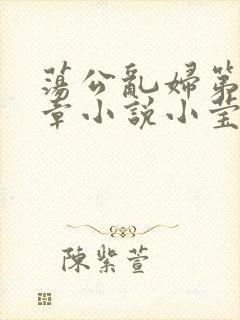 蕩公亂婦第
章小說小莹
陳紫萱